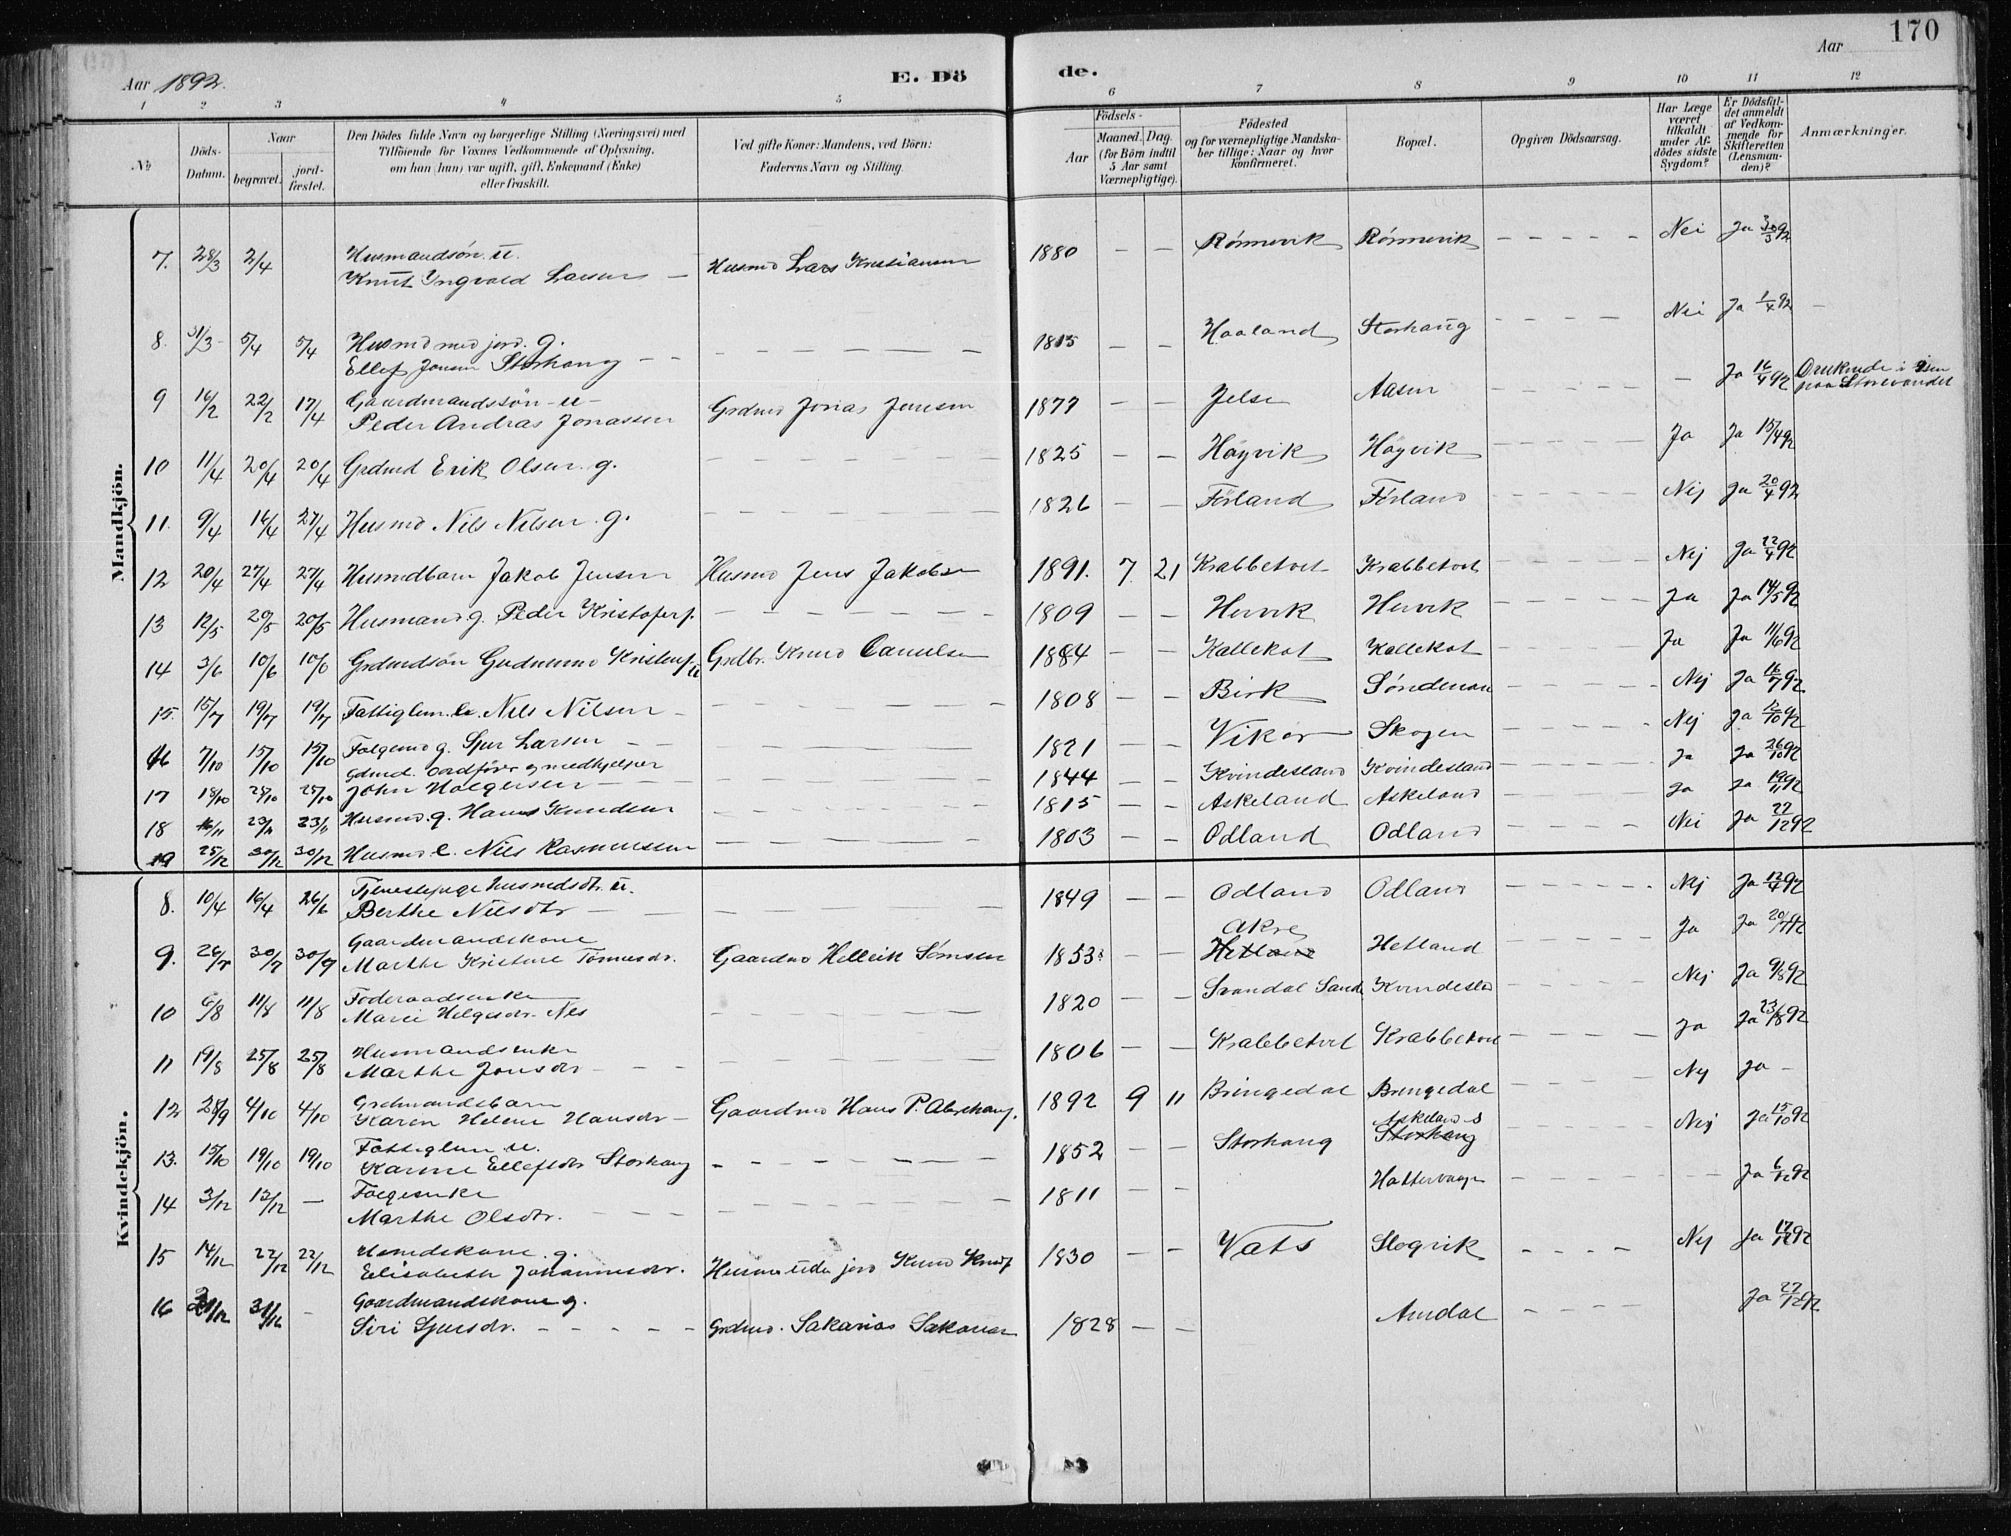 170
Aar 1892.
E. Dö
de.
Aar
1 2 3 4 5 6 7 8 9 10 11 12
No
Döds-Datum.
Naar
begravet.
jord-fæstet.
Den Dödes fulde Navn og borgerlige Stilling (Næringsvei) med
Tilföiende for Voxnes Vedkommende af Oplysning,
om han (hun) var ugift, gift, Enkemand (Enke)
eller fraskilt.
Ved gifte Koner: Mandens, ved Börn:
Faderens Navn og Stilling.
Födsels-
Aar
Maaned. Dag.
(for Börn indtil 5 Aar samt Værnepligtige).
Födested
og for værnepligtige Mandska-
ber tillige: Naar og hvor
konfirmeret.
Bopæl.
Opgiven Dödsaarsag.
Har Læge været tilkaldt under Af-dödes sidste Sygdom?
Er Dödsfal-det anmeldt af Vedkom-mende for Skifteretten (Lensman-den)?
Anmærkninger.
Mandkjön.
7. 28/3 2/4 Husmandsön u. Knut Yngvald Larsen — Husmd Lars Kristiansen 1880 — — Rönnevik Rönnevik - - - - - Nei Ja 30/3 92
8. 31/3 5/4 5/4 Husmd med jord. g. Ellef Jonsen Storhaug - - 1815 — — Haaland Storhaug - - - - Nei Ja 1/4 92
9 16/2 22/2 17/4 Gaardmandssön -u- Peder Andras Jonassen Grdmd Jonas Jensen 1877 — — Jelse Aasen - - - - — Ja 16/4 92 Druknede i isen paa Storevandet
10 11/4 20/4 20/4 Grdmd Erik Olsen. g. 1825 — — Höyvik Höyvik - - - - Ja Ja 15/4 92
11. 9/4 16/4 27/4 Husmd Nils Nilsen. g. 1826 — — Förland Förland - - - - Nej Ja 20/4 92
12 20/4 27/4 27/4 Husmdbarn Jakob Jensen Husmd Jens Jakobsen 1891. 7 21 Krabbetvet Krabbetvet - - - - Nej Ja 22/4 92
13 12/5 20/5 20/5 Husmand g. Peder Kristofers. 1809 — — Hervik Hervik - - - - Ja Ja 14/5 92
14 3/6 10/6 10/6 Grdmdsön Gudmund Knudsen u Grdbr. Knud 1884 — — Kallekot Kallekot - - - - Ja Ja 11/6 92
15. 15/7 19/7 19/7 Fattiglem. e. Nils Nilsen - 1808 — — Birk Söndenaa - - - - Nej Ja 16/7 92
16 7/10 15/10 15/10 Folgemd g. Sjur Larsen 1821 — — Vikör Skogen - - - - Nej Ja 12/10 92
17 18/10 25/10 25/10 Gdmd. Ordförer og medhjelper John Holgersen 1844 — — Kvindesland Kvindesland - - - - Ja Ja 26/10 92
18 16/11 23/11 23/11 Husmd. g. Hans Knudsen 1815 — — Askeland Askeland - - - - Ja Ja 19/11 92
19 25/12 30/12 30/12 Husmd e. Nils Rasmussen 1803 — Odland Odland - - - - Nei Ja 27/12 92
Kvindekjön.
8. 10/4 16/4 26/6 Tjenestepige Husmdsdtr. u. Berthe Nilsdtr - - 1849 — — Odland Odland - - - - Nej Ja 12/4 92
9. 26/7 30/7 30/9 Gaardmandskone Marthe Kristine Tönnesdr. Gaardmd Helleik Sömsen 1853 — — Akre Hetland Hetland - - - - Ja Ja 92
10 6/8 11/8 11/8 Foderaadsenke Marie Helgesdr. Nes 1820 — — Svandal Sande Kvindesld - - - - Nej Ja 9/8 92
11 19/8 25/8 25/8 Husmandsenke Marthe Jonsdtr - - - 1806 — — Krabbetvet Krabbetvet - - - - Ja Ja 23/8 92
12 28/9 4/10 4/10 Grdmandsbarn Karen Helene Hansdtr - Gaardmd Hans P. Abrahams. 1892 9 11 Bringedal Bringedal - - - - Nej Ja -
13. 15/10 19/10 19/10 Fattiglem. u. Karine Ellefsdtr Storhaug 1852 — — Storhaug Askeland Storhaug - - - - Nej Ja 15/10 92
14 3/12 12/12 — Folgeenke Marthe Olsdtr. - - - 1811 — — Hattervaag - - - - - - Ja 6/12 92
15 14/12 22/12 22/12 Husmdskone. g. Elisabeth Johannesdr. Husmd uden jord Knud Knuds. 1830 — — Vats Slogvik - - - - Nej Ja 17/12 92
16 21/12 31/12 - Gaardmandskone g. Siri Sjursdr. - - - - - Grdmd. Sakarias Sakarias 1828 — — Amdal - - - - Ja 27/12 92